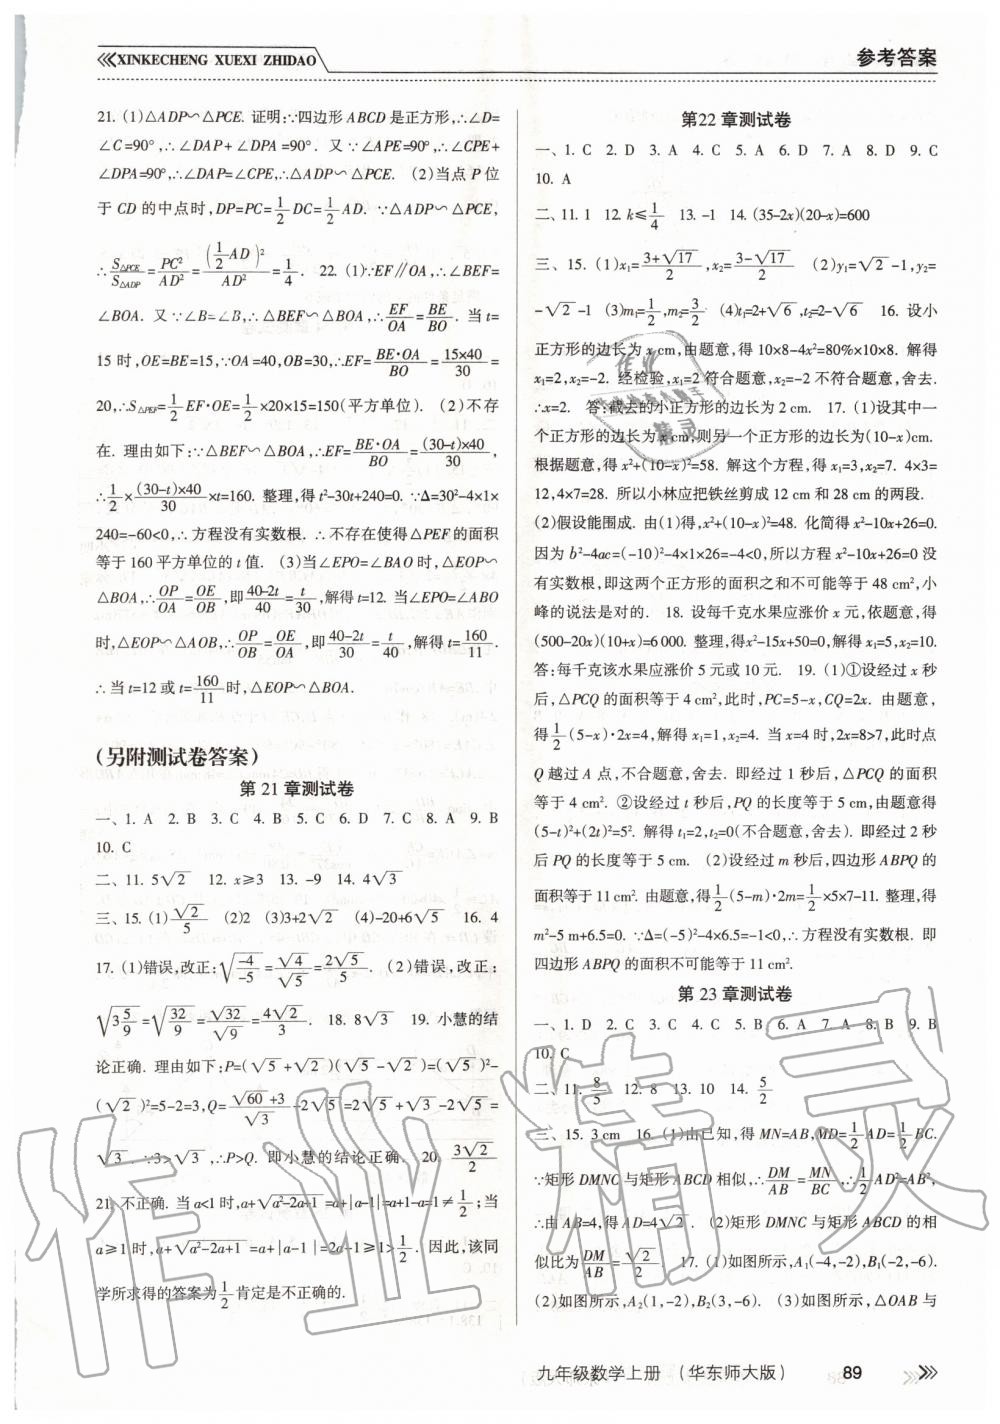 XINKECHENG XUEXI ZHIDAO
参考答案
21. (1)△ADP∽△PCE. 证明:∵四边形 ABCD 是正方形,∴∠D=
∠C=90°,∴∠DAP+∠DPA=90°. 又∵∠APE=90°,∴∠CPE+
∠DPA=90°,∴∠DAP=∠CPE,∴△ADP∽△PCE. (2)当点 P 位
于 CD 的中点时,DP=PC=1/2 DC=1/2 AD. ∵△ADP∽△PCE,
∴S△PCE/S△ADP=PC²/AD²=(1/2 AD)²/AD²=1/4. 22. (1)∵EF∥OA,∴∠BEF=
∠BOA. 又∵∠B=∠B,∴△BEF∽△BOA,∴EF/OA=BE/BO. 当 t=
15 时,OE=BE=15,∵OA=40,OB=30,∴EF=BE·OA/BO=15×40/30=
20,∴S△PEF=1/2 EF·OE=1/2×20×15=150(平方单位). (2)不存
在. 理由如下:∵△BEF∽△BOA,∴EF=BE·OA/BO=(30-t)×40/30,
∴1/2×(30-t)×40/30×t=160. 整理,得 t²-30t+240=0. ∵Δ=30²-4×1×
240=-60<0,∴方程没有实数根. ∴不存在使得△PEF的面积
等于 160 平方单位的 t 值. (3)当∠EPO=∠BAO 时,△EOP∽
△BOA,∴OP/OA=OE/OB,即40-2t/40=t/30,解得 t=12. 当∠EPO=∠ABO
时,△EOP∽△AOB,∴OP/OB=OE/OA,即40-2t/30=t/40,解得 t=160/11.
∴当 t=12 或 t=160/11时,△EOP∽△BOA.
(另附测试卷答案)
第 21 章测试卷
一、1. A 2. B 3. C 4. B 5. C 6. D 7. C 8. A 9. B
10. C
二、11. 5√2 12. x≥3 13. -9 14. 4√3
三、15. (1)√2/5 (2)2 (3)3+2√2 (4)-20+6√5 16. 4
17. (1)错误,改正:√(-4/-5)=√4/√5=2√5/5. (2)错误,改正:
√(3 5/9)=√(32/9)=√32/√9=4√2/3. 18. 8√3 19. 小慧的结
论正确. 理由如下:P=(√5+√2)(√5-√2)=(√5)²-
(√2)²=5-2=3,Q=√60+3/√3-2√5=2√5+√3-2√5=
√3. ∵3>√3,∴P>Q. 即小慧的结论正确. 20. 3√2/2
21. 不正确. 当 a<1 时,a+√(a²-2a+1)=a+|a-1|=a+1-a=1≠1/2;当
a≥1 时,a+√(a²-2a+1)=a+|a-1|=2a-1≥1>1/2. 因此,该同
学所求得的答案为1/2肯定是不正确的.
第22 章测试卷
一、1. C 2. D 3. A 4. C 5. A 6. D 7. A 8. D 9. C
10. A
二、11. 1 12. k≤1/4 13. -1 14. (35-2x)(20-x)=600
三、15. (1)x₁=3+√17/2,x₂=3-√17/2 (2)y₁=√2-1,y₂=
-√2-1 (3)m₁=1/2,m₂=3/2 (4)t₁=2+√6,t₂=2-√6 16. 设小
正方形的边长为 x cm,由题意,得 10×8-4x²=80%×10×8. 解得
x₁=2,x₂=-2. 经检验,x₁=2 符合题意,x₂=-2 不符合题意,舍去.
∴x=2. 答:截去的小正方形的边长为 2 cm. 17. (1)设其中一
个正方形的边长为 x cm,则另一个正方形的边长为(10-x)cm.
根据题意,得 x²+(10-x)²=58. 解这个方程,得 x₁=3,x₂=7. 4×3=
12,4×7=28. 所以小林应把铁丝剪成 12 cm 和 28 cm 的两段.
(2)假设能围成. 由(1)得,x²+(10-x)²=48. 化简得 x²-10x+26=0.
因为 b²-4ac=(-10)²-4×1×26=-4<0,所以方程 x²-10x+26=0 没
有实数根,即这两个正方形的面积之和不可能等于 48 cm²,小
峰的说法是对的. 18. 设每千克水果应涨价 x 元,依题意,得
(500-20x)(10+x)=6 000. 整理,得x²-15x+50=0,解得 x₁=5,x₂=10.
答:每千克该水果应涨价 5 元或 10 元. 19. (1)①设经过 x 秒
后,△PCQ 的面积等于 4 cm²,此时,PC=5-x,CQ=2x. 由题意,
得1/2(5-x)·2x=4,解得 x₁=1,x₂=4. 当 x=4 时,2x=8>7,此时点
Q 越过 A 点,不合题意,舍去. 即经过 1 秒后,△PCQ 的面积
等于 4 cm². ②设经过 t 秒后,PQ 的长度等于 5 cm,由题意得
(5-t)²+(2t)²=5². 解得 t₁=2,t₂=0(不合题意,舍去). 即经过 2 秒
后 PQ 的长度等于 5 cm. (2)设经过 m 秒后,四边形 ABPQ 的
面积等于 11 cm². 由题意,得1/2(5-m)·2m=1/2×5×7-11. 整理,得
m²-5 m+6.5=0. ∵Δ=(-5)²-4×6.5=-1<0,∴方程没有实数根. 即
四边形 ABPQ 的面积不可能等于 11 cm².
第 23 章测试卷
一、1. D 2. C 3. C 4. C 5. B 6. A 7. A 8. B 9. B
10. C
二、11. 8/5 12. 8 13. 10 14. 5/2
三、15. 3 cm 16. (1)由已知,得 MN=AB,MD=1/2 AD=1/2 BC.
∵矩形 DMNC 与矩形 ABCD 相似,∴DM/AB=MN/BC,∴1/2 AD²=AB²,
∴由 AB=4,得 AD=4√2. (2)矩形 DMNC 与矩形 ABCD 的相
似比为DM/AB=√2/2. 17. (1)如图所示,A₁(-4,-2),B₁(-2,-6).
(2)如图所示,A₂(1,-2),B₂(3,-6). (3)如图所示,△OAB 与
九年级数学上册 (华东师大版) 89
作业精灵